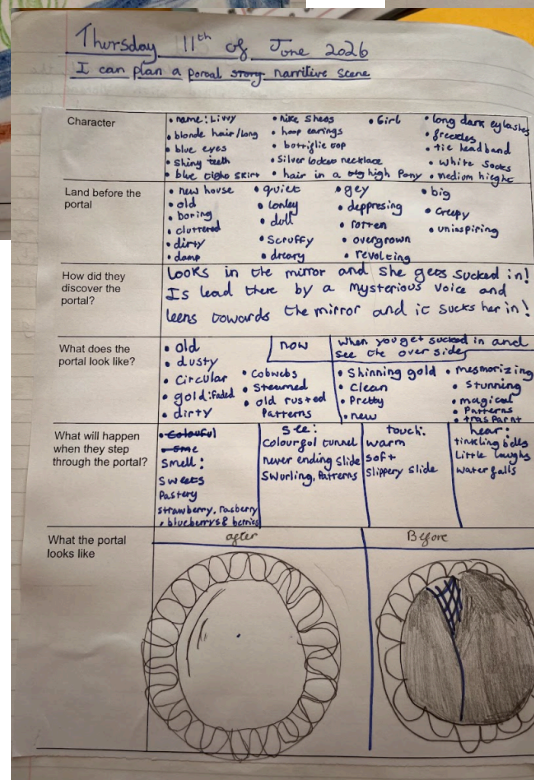 Thursday 11th of June 2026
I can plan a poroal story narritive scene
Character
• name: Livvy
• blonde hair/long
• blue eyes
• Shiny teeth
• blue tight skirt
• nike shoas
• hoop earings
• silver locket necklace
• hair in a high Pony
• Girl
• long dark eylashes
• freckles
• tie headband
• white socks
• medium hieght
Land before the portal
• new house
• old
• boring
• cluttered
• dirty
• damp
• quiet
• lonley
• dull
• Scruffy
• dreary
• gey
• deppresing
• rotten
• overgrown
• revolting
• big
• creepy
• uninspiring
How did they discover the portal?
Looks in the mirror and she gets sucked in!
Is lead there by a mysterious voice and
leens towards the mirror and it sucks her in!
What does the portal look like?
• old
• dusty
• circular
• gold: faded
• dirty
now
• cobwebs
• Steamed
• old rusted
Patterns
when you get sucked in and
see the over side
• Shinning gold
• clean
• Pretty
• new
• mesmorizing
• Stunning
• magical
• Patterns
What will happen when they step through the portal?
• Colouful
Smell:
Sweets
Pastery
strawberry, rasberry
, blueberrys & berries
See:
Colourgol tunnel
never ending slide
Swurling, Patterns
touch:
warm
soft
Slippery slide
hear:
tinkling belles
Little laughs
waterfalls
What the portal looks like
after
Before